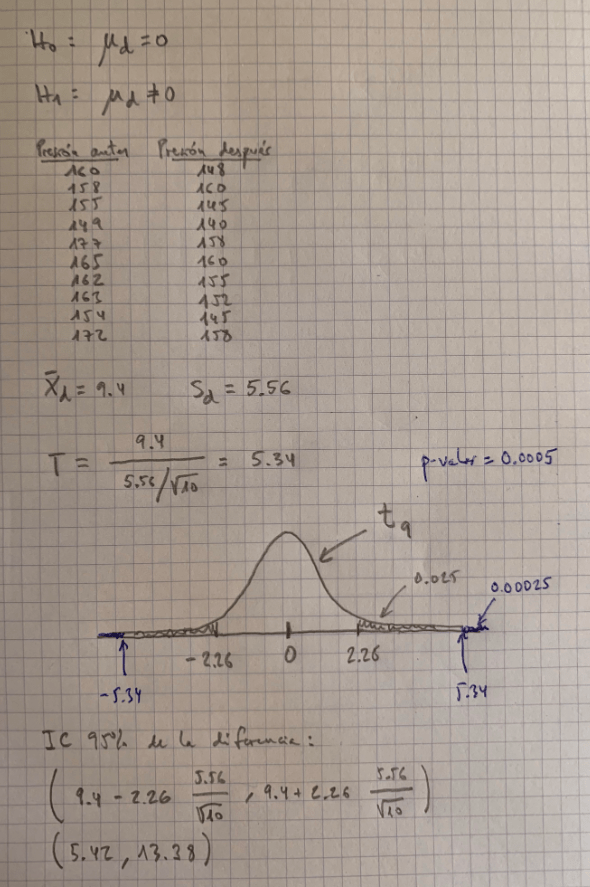 H₀ = μd = 0
H₁ = μd ≠ 0
Presión antes Presión después
160 148
158 160
155 145
149 140
177 158
165 160
162 155
163 152
154 145
172 158
X̄d = 9.4 Sd = 5.56
T = 9.4 / (5.56/√10) = 5.34 p-valor = 0.0005
t₉
0.025
0.00025
-2.26 0 2.26
-5.34 5.34
IC 95% de la diferencia:
( 9.4 - 2.26 5.56/√10 , 9.4 + 2.26 5.56/√10 )
( 5.42 , 13.38 )